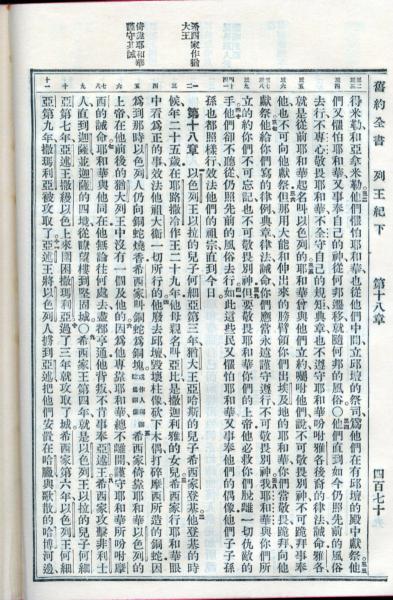 舊約全書 列王紀下 第十八章 四百七十
得米勒和亞拿米勒他們懼怕耶和華也從他們中間立邱壇的祭司爲他們在有邱壇的殿中獻祭他
們又懼怕耶和華又事奉自己的神從何邦遷移就隨何邦的風俗〇他們直到如今仍照先前的風俗
去行不專心敬畏耶和華不全守自己的規矩典章也不遵守耶和華吩咐雅各後裔的律法誡命雅各
就是從前耶和華起名叫以色列的耶和華曾與他們立約囑咐他們說不可敬畏別神不可跪拜事奉
他也不可向他獻祭但那用大能和伸出來的膀臂領你們出埃及地的耶和華你們當敬畏跪拜向他
獻祭他給你們寫的律例典章律法誡命你們應當永遠謹守遵行不可敬畏別神我耶和華與你們所
立的約你們不可忘記也不可敬畏別神但要敬畏耶和華你們的上帝他必救你們脫離一切仇敵的
手他們卻不聽從仍照先前的風俗去行如此這些民又懼怕耶和華又事奉他們的偶像他們子子孫
孫也都照樣行效法他們的祖宗直到今日
第十八章 以色列王以拉的兒子何細亞第三年猶大王亞哈斯的兒子希西家登基他登基的時
候年二十五歲在耶路撒冷作王二十九年他母親名叫亞比是撒迦利雅的女兒希西家行耶和華眼
中看爲正的事效法他祖大衛一切所行的他廢去邱壇毀壞柱像砍下木偶打碎摩西所造的銅蛇因
爲到那時以色列人仍向銅蛇燒香希西家叫銅蛇爲銅塊希西家倚靠耶和華以色列的
上帝在他前後的猶大列王中沒有一個及他的因爲他專靠耶和華總不離開謹守耶和華所吩咐摩
西的誡命耶和華與他同在他無論往何處去盡都亨通他背叛不肯事奉亞述王希西家攻擊非利士
人直到迦薩並迦薩的四境從瞭望樓到堅固城〇希西家王第四年就是以色列王以拉的兒子何細
亞第七年亞述王撒縵以色上來圍困撒瑪利亞過了三年就攻取了城希西家第六年以色列王何細
亞第九年撒瑪利亞被攻取了亞述王將以色列人擄到亞述把他們安置在哈臘與歌散的哈博河邊
希西家作猶
大王
倚靠耶和華
謹守其誡